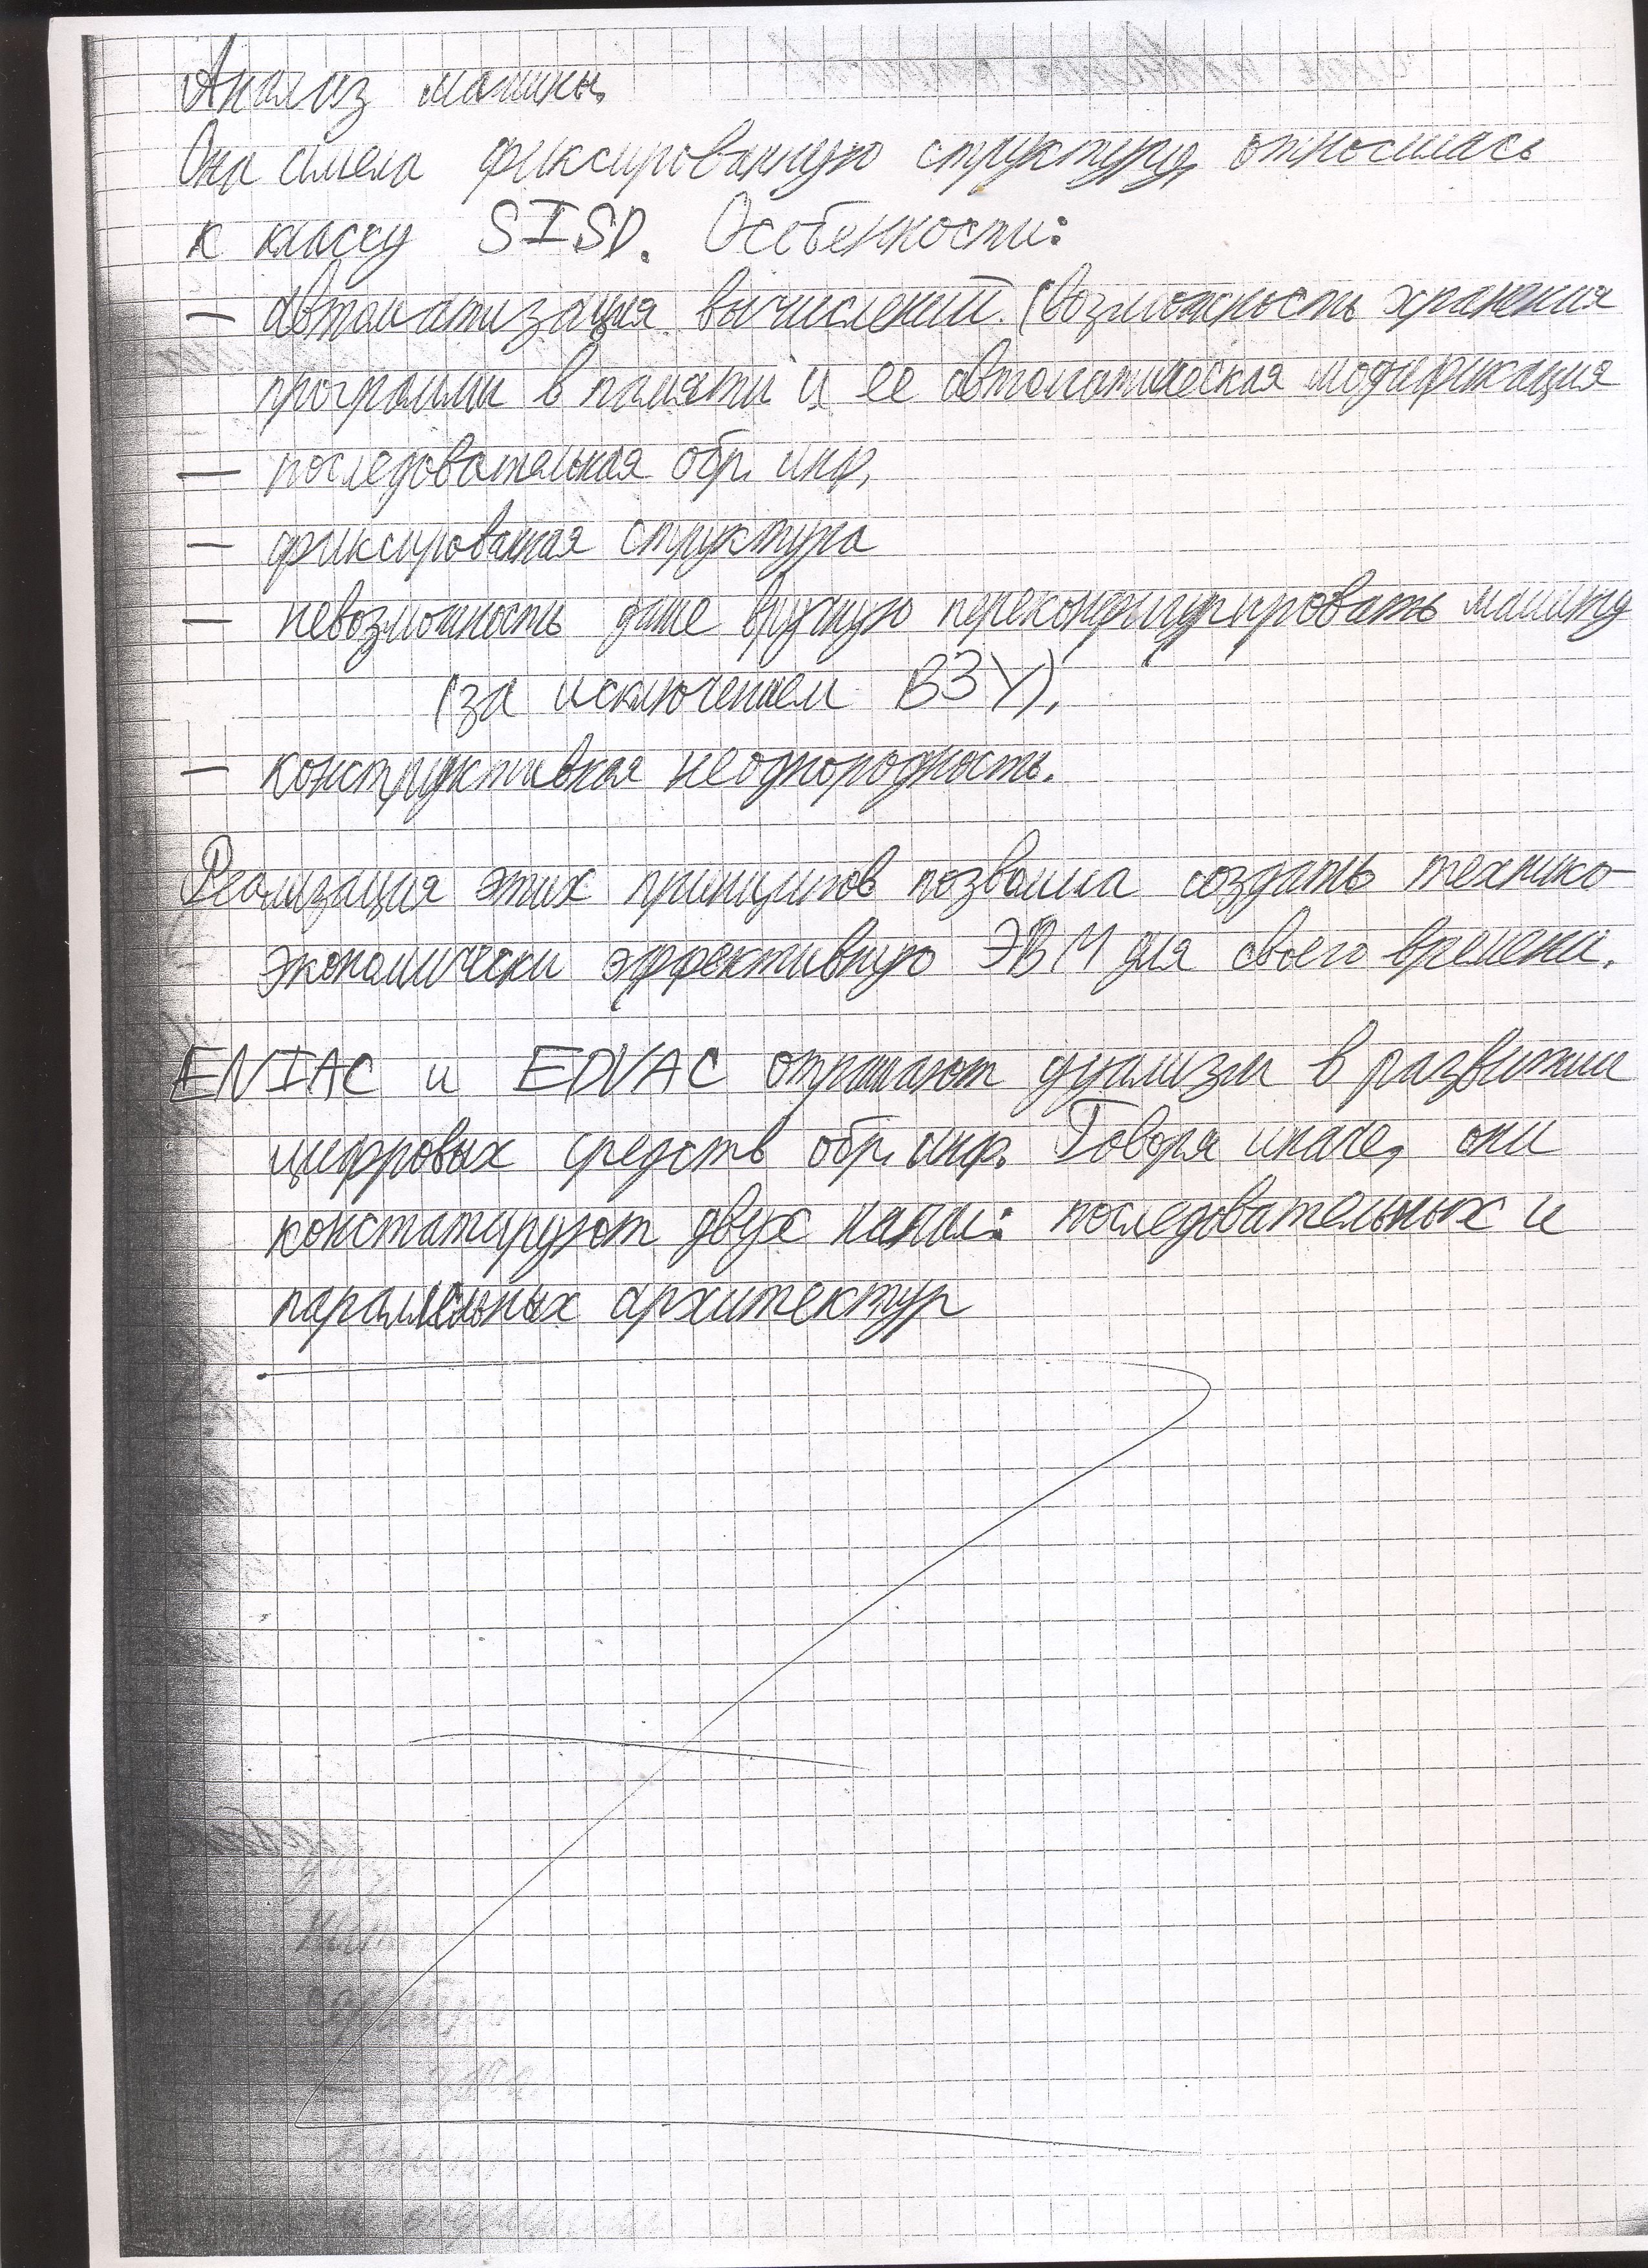 Анализ машины.
Она имела фиксированную структуру, относилась
к классу SISD. Особенности:
— автоматизация вычислений. (возможность хранения
программы в памяти и ее автоматическая модификация
— последовательная обр. инф.
— фиксированая структура
— невозможность даже вручную переконфигурировать машину
(за исключением ВЗУ),
— конструктивная неоднородность.
Реализация этих принципов позволила создать технико-
экономически эффективную ЭВМ для своего времени.
ENIAC и EDVAC отражают дуализм в развитии
цифровых средств обр. инф. Говоря иначе, они
констатируют двух начал: последовательных и
параллельных архитектур